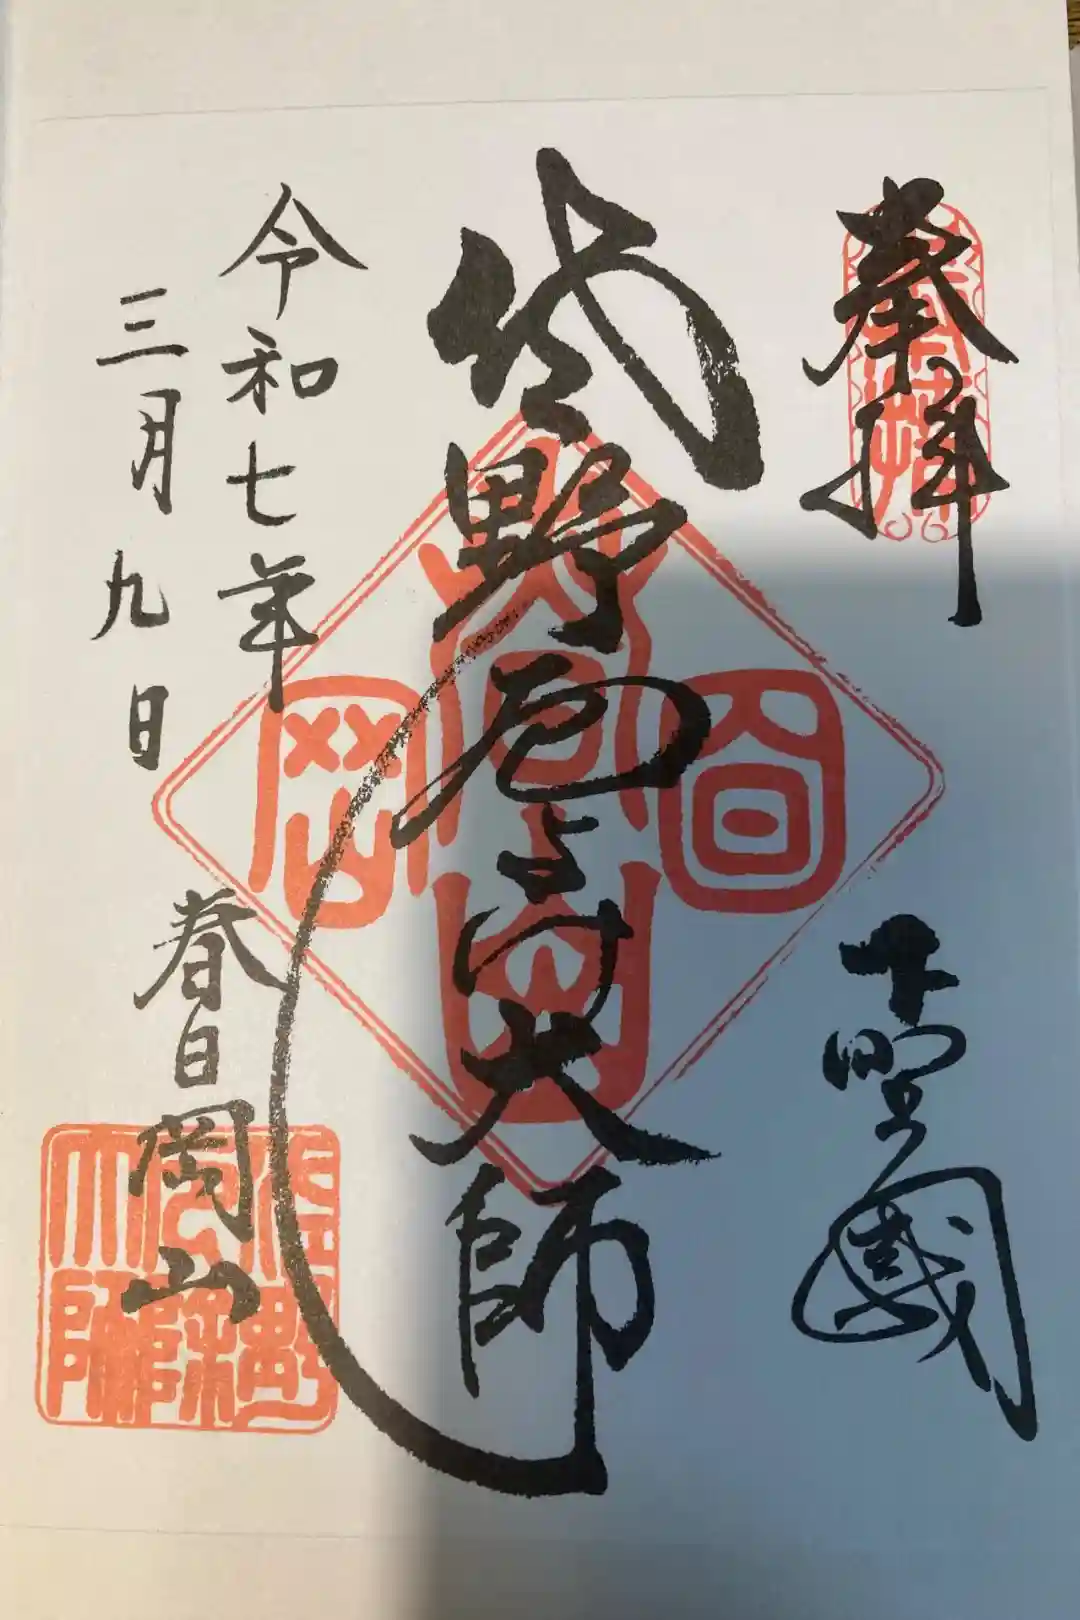 奉拝
下野國
佐野厄よけ大師
令和七年
三月九日
春日岡山
佐野厄除大師